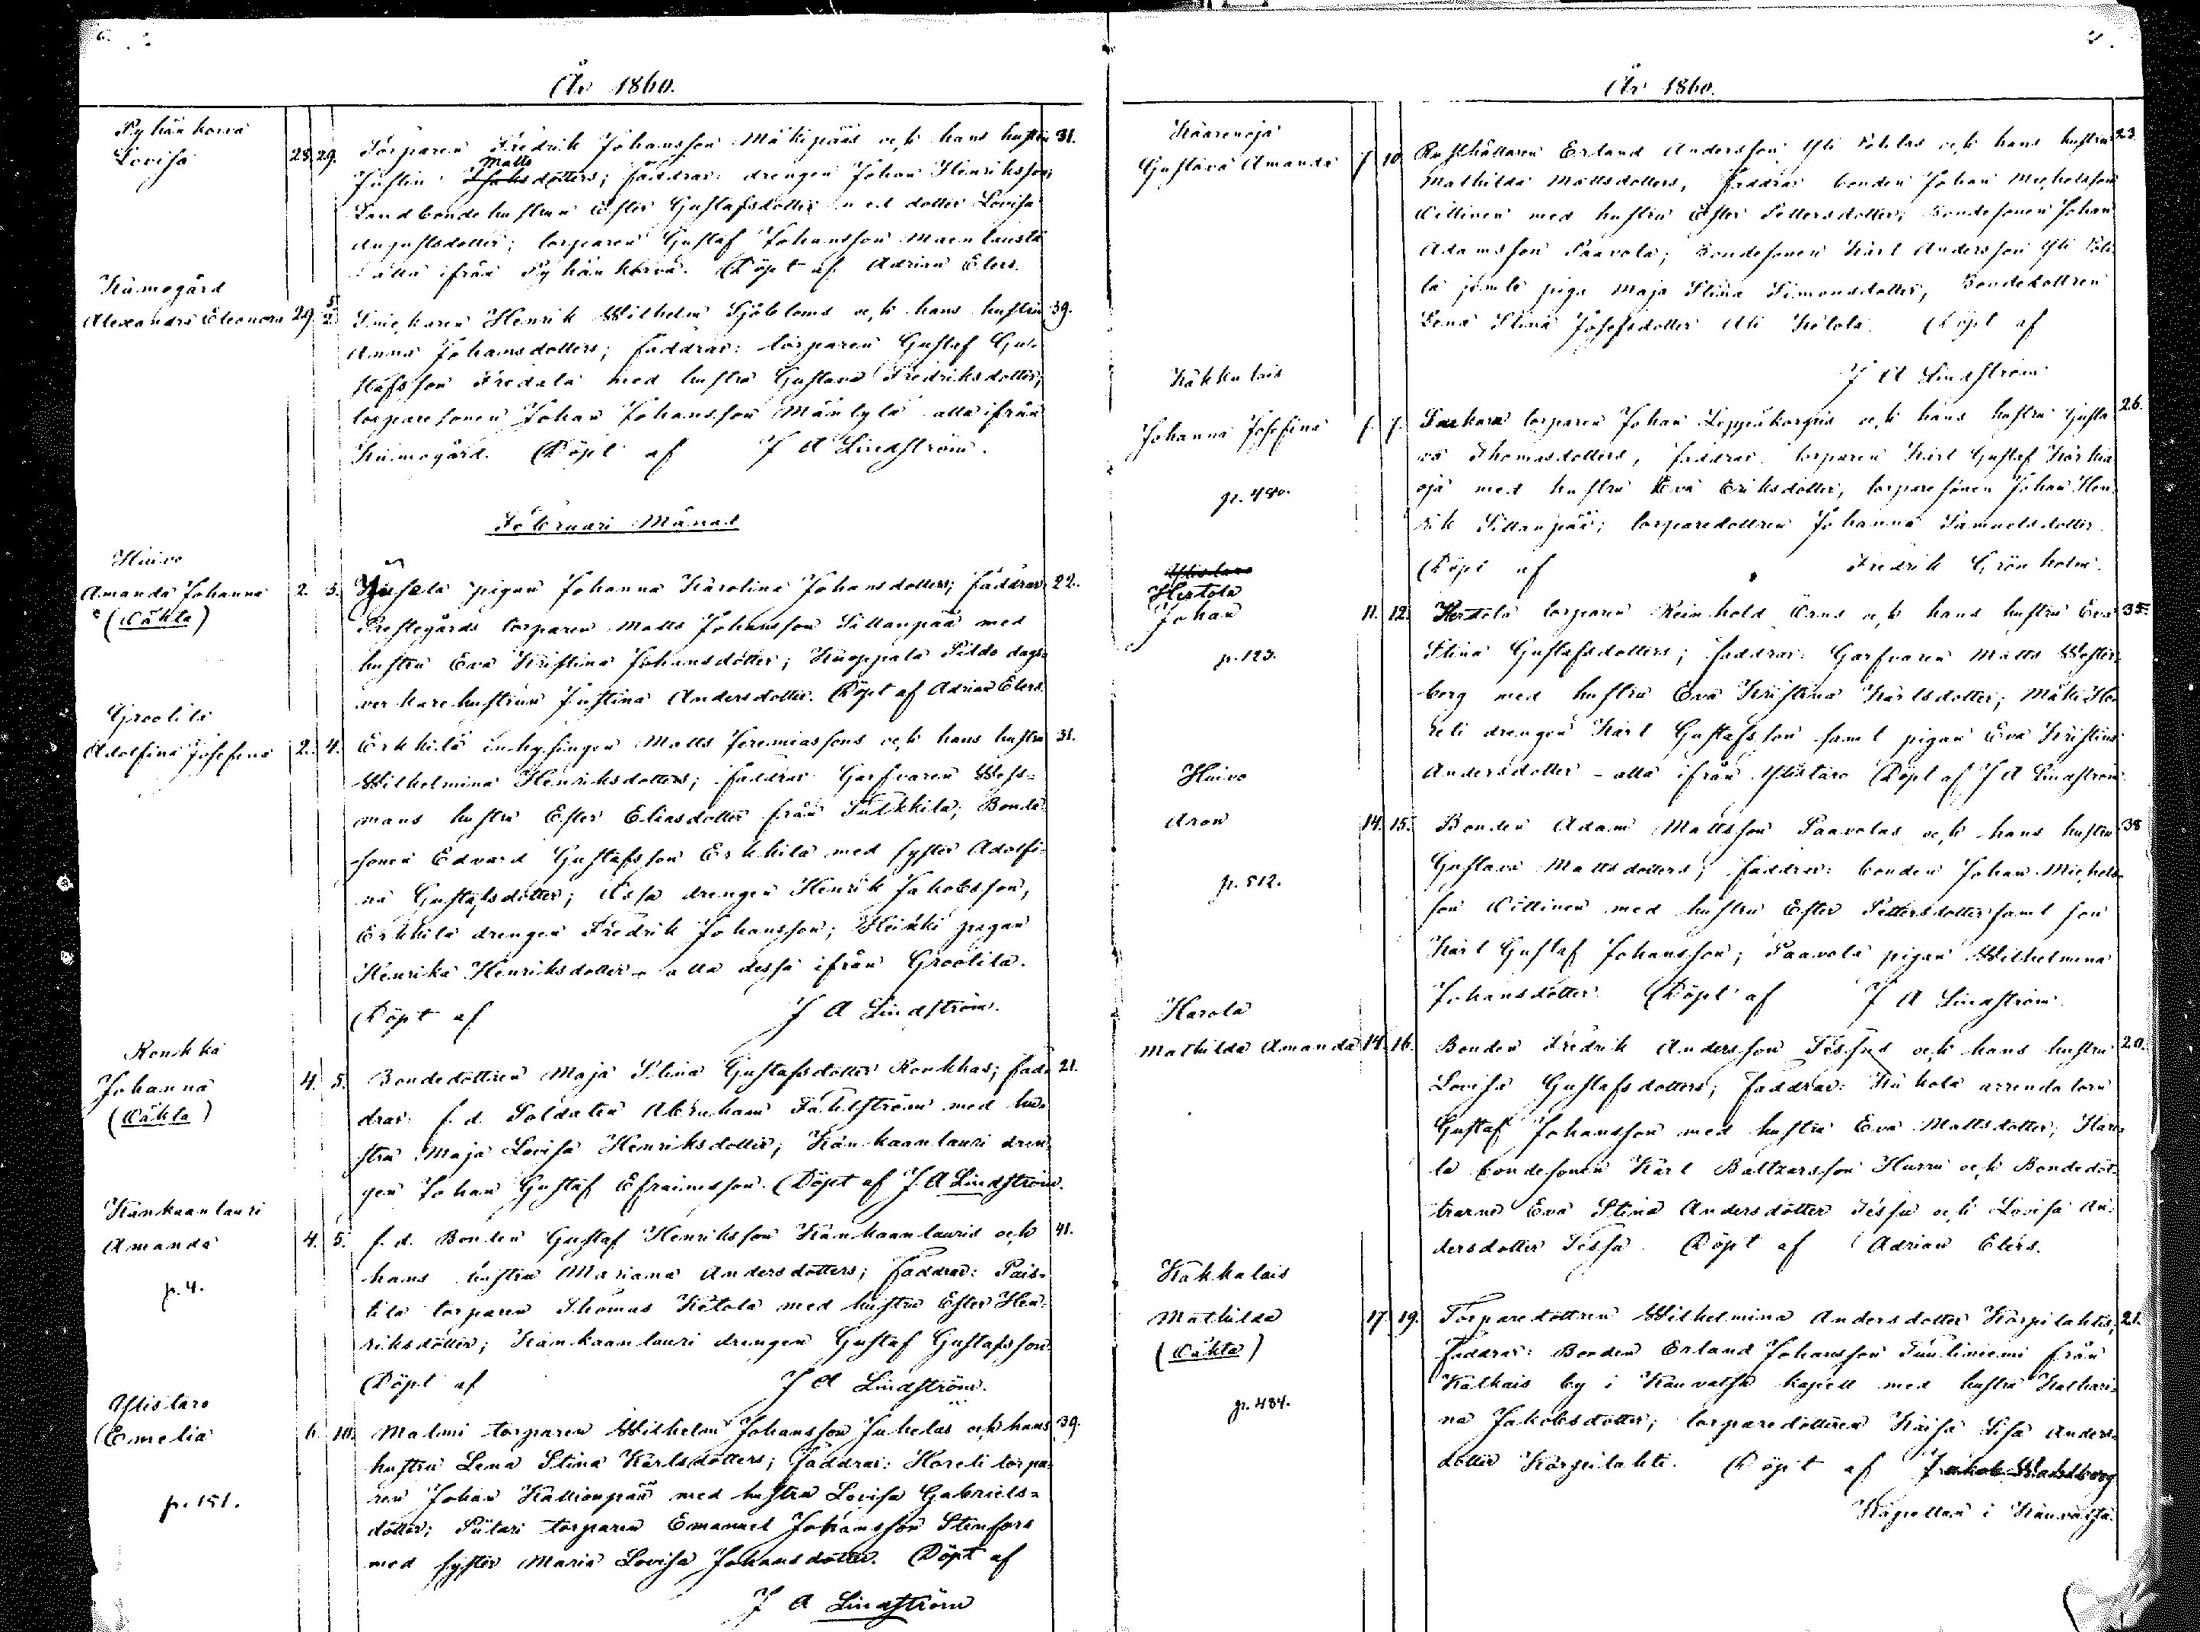 År 1860.
Pyhänkorva
Lovisa 28. 29. Torparen Fredrik Johansson Mäkipääs och hans hustru 31.
Matts
Justin Isaksdotters; faddrar: drengen Johan Henriksson;
Landbondehustrun Ester Gustafsdotter med dotter Lovisa
Augustsdotter; torparen Gustaf Johansson
alla ifrån Pyhänkorva. Döpt af Adrian Elers.
Kumogård
Alexandra Eleonora 29. 5/2 Snickaren Henrik Wilhelm Sjöbloms och hans hustru 39.
Anna Johansdotters; faddrar: torparen Gustaf Gu-
stafsson Fredala med hustru Gustava Fredriksdotter;
torparesonen Johan Johansson Mäntylä alla ifrån
Kumogård. Döpt af J A Lindström.
Februari Månad
Huivo
Amanda Johanna 2. 3. pigan Johanna Karolina Johansdotters; faddrar: 22.
(Oäkta)
Prestegårds torparen Matts Johansson Sillanpää med
hustru Eva Kristina Johansdotter; Kuoppala Pildo dags-
verkarehustrun Justina Andersdotter. Döpt af Adrian Elers.
Groolila
Adolfina Josefina 2. 4. Erkkilä inhysingen Matts Jeremiassons och hans hustru 31.
Wilhelmina Henriksdotters; faddrar: Garfvaren Wess-
mans hustru Ester Eliasdotter från Tulkkila; Bonde-
sonen Edvard Gustafsson Erkkilä med syster Adolfi-
na Gustafsdotter; Ossa drengen Henrik Jakobsson,
Erkkilä drengen Fredrik Johansson; Heikki pigan
Henrika Henriksdotter - alla dessa ifrån Groolila.
Döpt af J A Lindström.
Ronkka
Johanna 4. 5. Bondedottren Maja Stina Gustafsdotter Ronkkas; fad- 21.
(Oäkta)
drar: f. d. Soldaten Abraham Fahlström med hu-
stru Maja Lovisa Henriksdotter; Kankaanlauri dren-
gen Johan Gustaf Efraimsson. Döpt af J. A Lindström.
Kankaanlauri
Amanda 4. 5. f. d. Bonden Gustaf Henriksson Kankaanlauris och 41.
p. 4.
hans hustru Mariana Andersdotters; faddrar: Pais-
tila torparen Thomas Ketola med hustru Ester Hen-
riksdotter; Kankaanlauri drengen Gustaf Gustafsson.
Döpt af J A Lindström.
Ylistaro
Emelia 6. 10. Malmi torparen Wilhelm Johansson Juhelas och hans 39.
p. 151.
hustru Lena Stina Karlsdotters; faddrar: Horeli torpa-
ren Johan Kallionpää med hustru Lovisa Gabriels-
dotter; Piitari torparen Emanuel Johansson Stenfors
med syster Maria Lovisa Johansdotter. Döpt af
J A Lindström
År 1860.
Kaarenoja
Gustava Amanda 7. 10. Rusthållaren Erland Andersson Yli och hans hustru 23.
Mathilda Mattsdotters, faddrar bonden Johan Michelsson
Wittinen med hustru Ester Pettersdotter; Bondesonen Johan
Adamsson Paavola; Bondesonen Karl Andersson Yli
la jemte piga Maja Stina Simonsdotter, Bondedottren
Lena Stina Josefsdotter Ali Ketola. Döpt af
J A Lindström
Kakkulais
Johanna Josefina torparen Johan Leppäkorpis och hans hustru Gusta- 26.
p. 480.
va Thomasdotters, faddrar: torparen Karl Gustaf
oja med hustru Eva Eriksdotter, torparesonen Johan Hen-
rik Sillanpää; torparedottren Johanna Samuelsdotter
Döpt af Fredrik Grönholm.
Ylistaro
Hertola
Johan 11. 12. Hertola torparen Reinhold Örns och hans hustru Eva 35.
p. 123.
Stina Gustafsdotters; faddrar: Garfvaren Matts Wester-
berg med hustru Eva Kristina Karlsdotter; Mäki Ho-
reli drengen Karl Gustafsson samt pigan Eva Kristina
Andersdotter - alla ifrån Ylistaro Döpt af J A Lindström
Huivo
Aron 14. 15. Bonden Adam Mattsson Paavolas och hans hustru 38
p. 512.
Gustava Mattsdotters; faddrar: bonden Johan Michels-
son Wittinen med hustru Ester Pettersdotter samt son
Karl Gustaf Johansson; Paavola pigan Wilhelmina
Johansdotter. Döpt af J A Lindström.
Harola
Mathilda Amanda 14. 16. Bonden Fredrik Andersson Tessus och hans hustru 20.
Lovisa Gustafsdotters; faddrar: Kukola arrendatorn
Gustaf Johansson med hustru Eva Mattsdotter; Haro-
la bondesonen Karl Baltzarsson Hurru och Bondedöt-
trarne Eva Stina Andersdotter Tessu och Lovisa An-
dersdotter Tessu. Döpt af Adrian Elers.
Kakkulais
Mathilda 17. 19. Torparedottren Wilhelmina Andersdotter Karpilahtis; 21.
(Oäkta)
p. 484.
faddrar: Bonden Erland Johansson Tuuliniemi från
Kalkais by i Kauvatsa kapell med hustru Kathari-
na Jakobsdotter; torparedottren Kaisa Lisa Anders-
dotter Karpilahti. Döpt af Jakob Wahlberg
Kapellan i Kauvatsa.